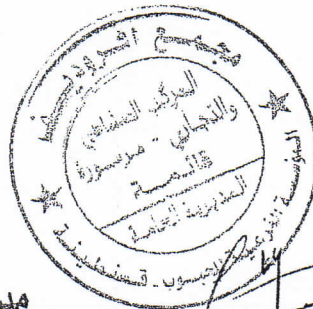 مجمع اقروديف
المركب الصناعي
والتجاري - مرمورة
قالمة
المديرية العامة
المؤسسة الفرعية للحبوب - قسنطينة